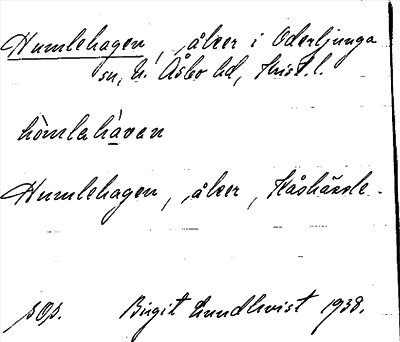 Humlehagen, åker i Oderljunga
sn, N. Åsbo hd, Krist. l.
hòmlahàvan
Humlehagen, åker, Kåshässle.
sOp. Birgit Lundkvist 1938.